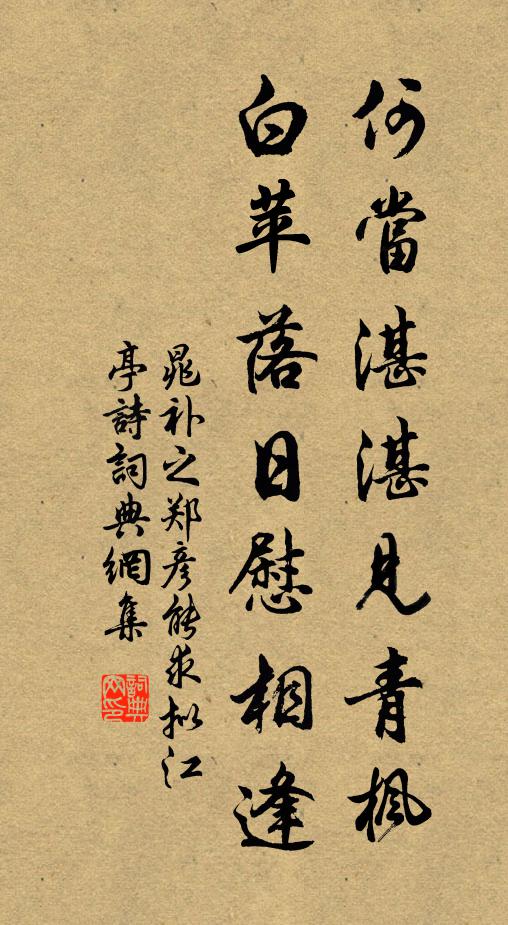 何當湛湛見青楓
白苹落日慰相逢
晁补之郑彦能求拟江
亭詩詞典網集